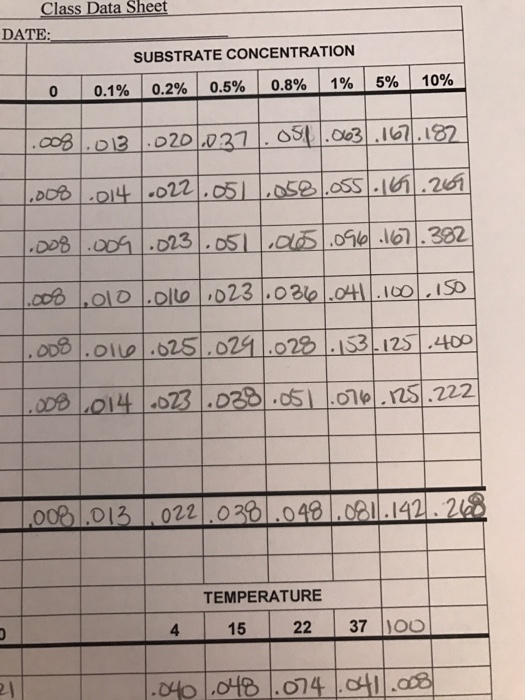 Class Data Sheet
DATE:
SUBSTRATE CONCENTRATION
0 0.1% 0.2% 0.5% 0.8% 1% 5% 10%
.008 .013 .020 .037 .051 .063 .167 .182
.008 .014 .022 .051 .058 .055 .169 .269
.008 .009 .023 .051 .065 .096 .167 .382
.008 .010 .016 .023 .036 .041 .100 .150
.008 .016 .025 .029 .028 .153 .125 .400
.008 .014 .023 .038 .051 .076 .125 .222
.008 .013 .022 .038 .048 .081 .142 .268
TEMPERATURE
4 15 22 37 100
.040 .048 .074 .041 .008